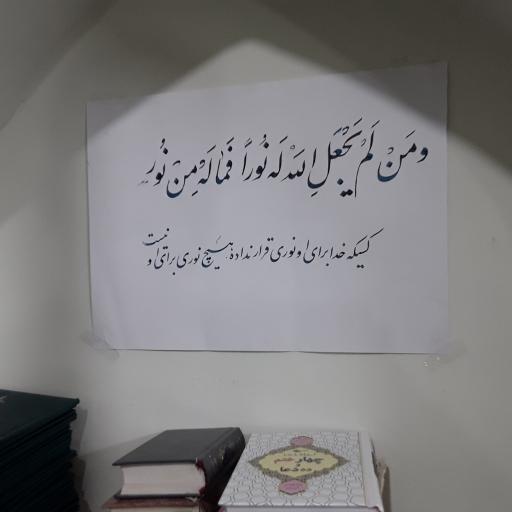 ومَنْ لَمْ یَجْعَلِ اللهُ لَهُ نُوراً فَمَالَهُ مِنْ نُورٍ
کسیکه خدا برای او نوری قرار نداده هیچ نوری برای او نیست